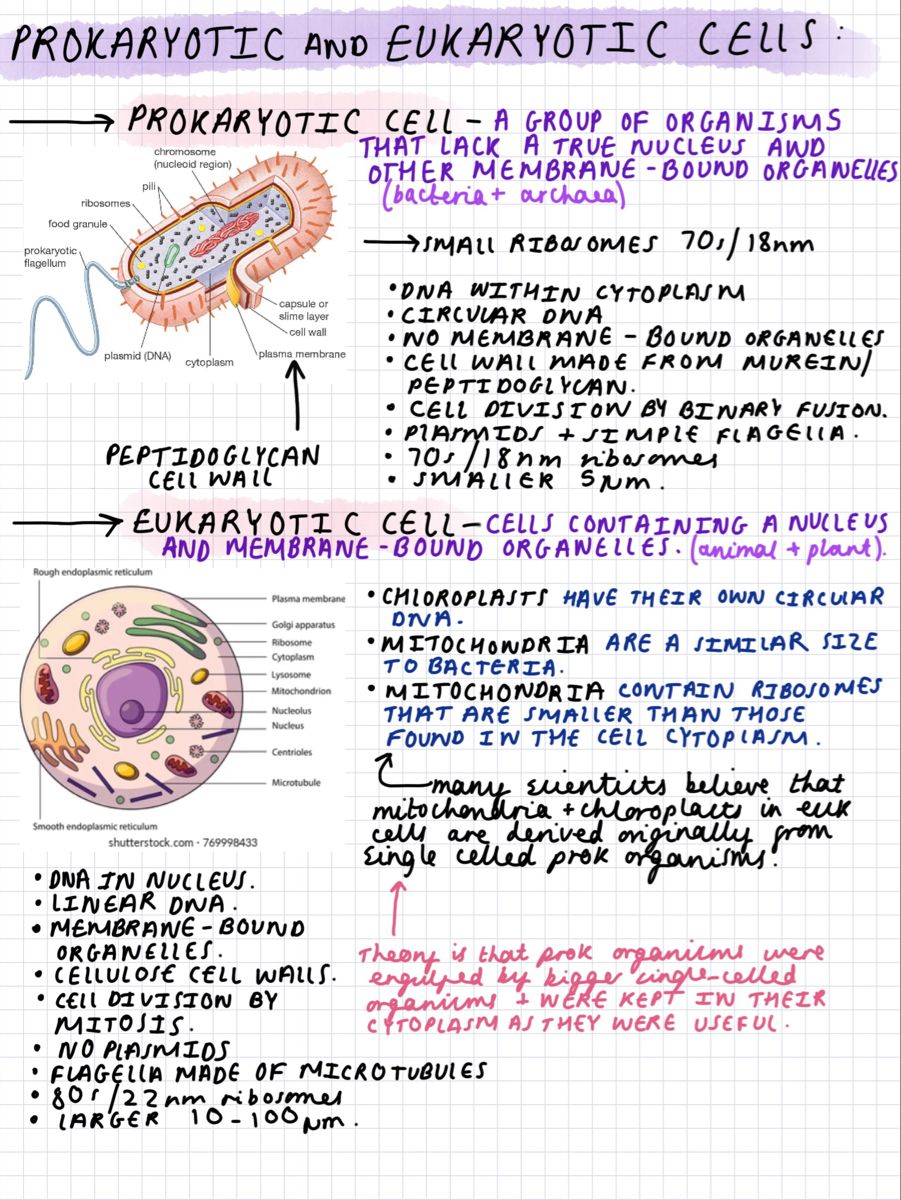 PROKARYOTIC AND EUKARYOTIC CELLS:
→ PROKARYOTIC CELL - A GROUP OF ORGANISMS
THAT LACK A TRUE NUCLEUS AND
OTHER MEMBRANE-BOUND ORGANELLES
(bacteria + archaea)
chromosome
(nucleoid region)
pili
ribosomes
food granule
prokaryotic
flagellum
capsule or
slime layer
cell wall
plasma membrane
cytoplasm
plasmid (DNA)
PEPTIDOGLYCAN
CELL WALL
→ SMALL RIBOSOMES 70s/18nm
• DNA WITHIN CYTOPLASM
• CIRCULAR DNA
• NO MEMBRANE-BOUND ORGANELLES
• CELL WALL MADE FROM MUREIN/
PEPTIDOGLYCAN.
• CELL DIVISION BY BINARY FUSION.
• PLASMIDS + SIMPLE FLAGELLA.
• 70s/18nm ribosomes
• SMALLER 5μm.
→ EUKARYOTIC CELL - CELLS CONTAINING A NUCLEUS
AND MEMBRANE-BOUND ORGANELLES. (animal + plant).
Rough endoplasmic reticulum
Plasma membrane
Golgi apparatus
Ribosome
Cytoplasm
Lysosome
Mitochondrion
Nucleolus
Nucleus
Centrioles
Microtubule
Smooth endoplasmic reticulum
shutterstock.com · 769998433
• CHLOROPLASTS HAVE THEIR OWN CIRCULAR
DNA.
• MITOCHONDRIA ARE A SIMILAR SIZE
TO BACTERIA.
• MITOCHONDRIA CONTAIN RIBOSOMES
THAT ARE SMALLER THAN THOSE
FOUND IN THE CELL CYTOPLASM.
many scientists believe that
mitochondria + chloroplacts in euk
cells are derived originally from
single celled prok organisms.
Theory is that prok organisms were
engulfed by bigger single-celled
organisms + WERE KEPT IN THEIR
CYTOPLASM AS THEY WERE USEFUL.
• DNA IN NUCLEUS.
• LINEAR DNA.
• MEMBRANE-BOUND
ORGANELLES.
• CELLULOSE CELL WALLS.
• CELL DIVISION BY
MITOSIS.
• NO PLASMIDS
• FLAGELLA MADE OF MICROTUBULES
• 80s/22nm ribosomes
• LARGER 10-100μm.